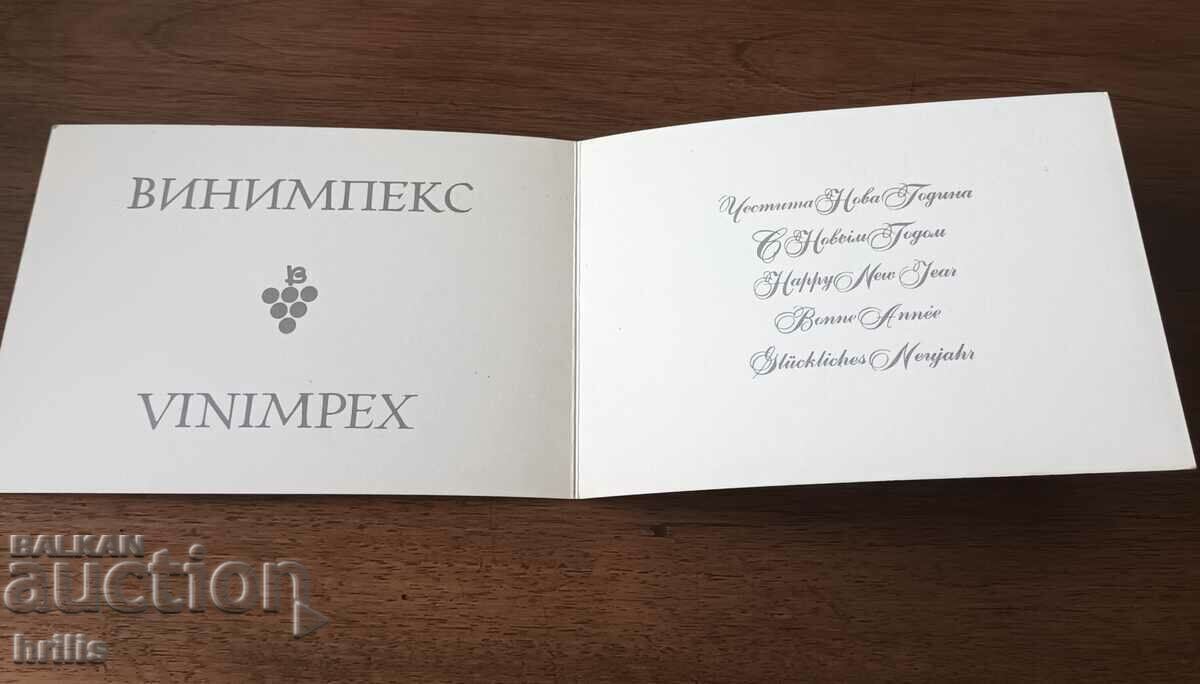 ВИНИМПЕКС
В
VINIMPEX
Честита Нова Година
С Новым Годом
Happy New Year
Bonne Année
Glückliches Neujahr
BALKAN
auction
hrilis